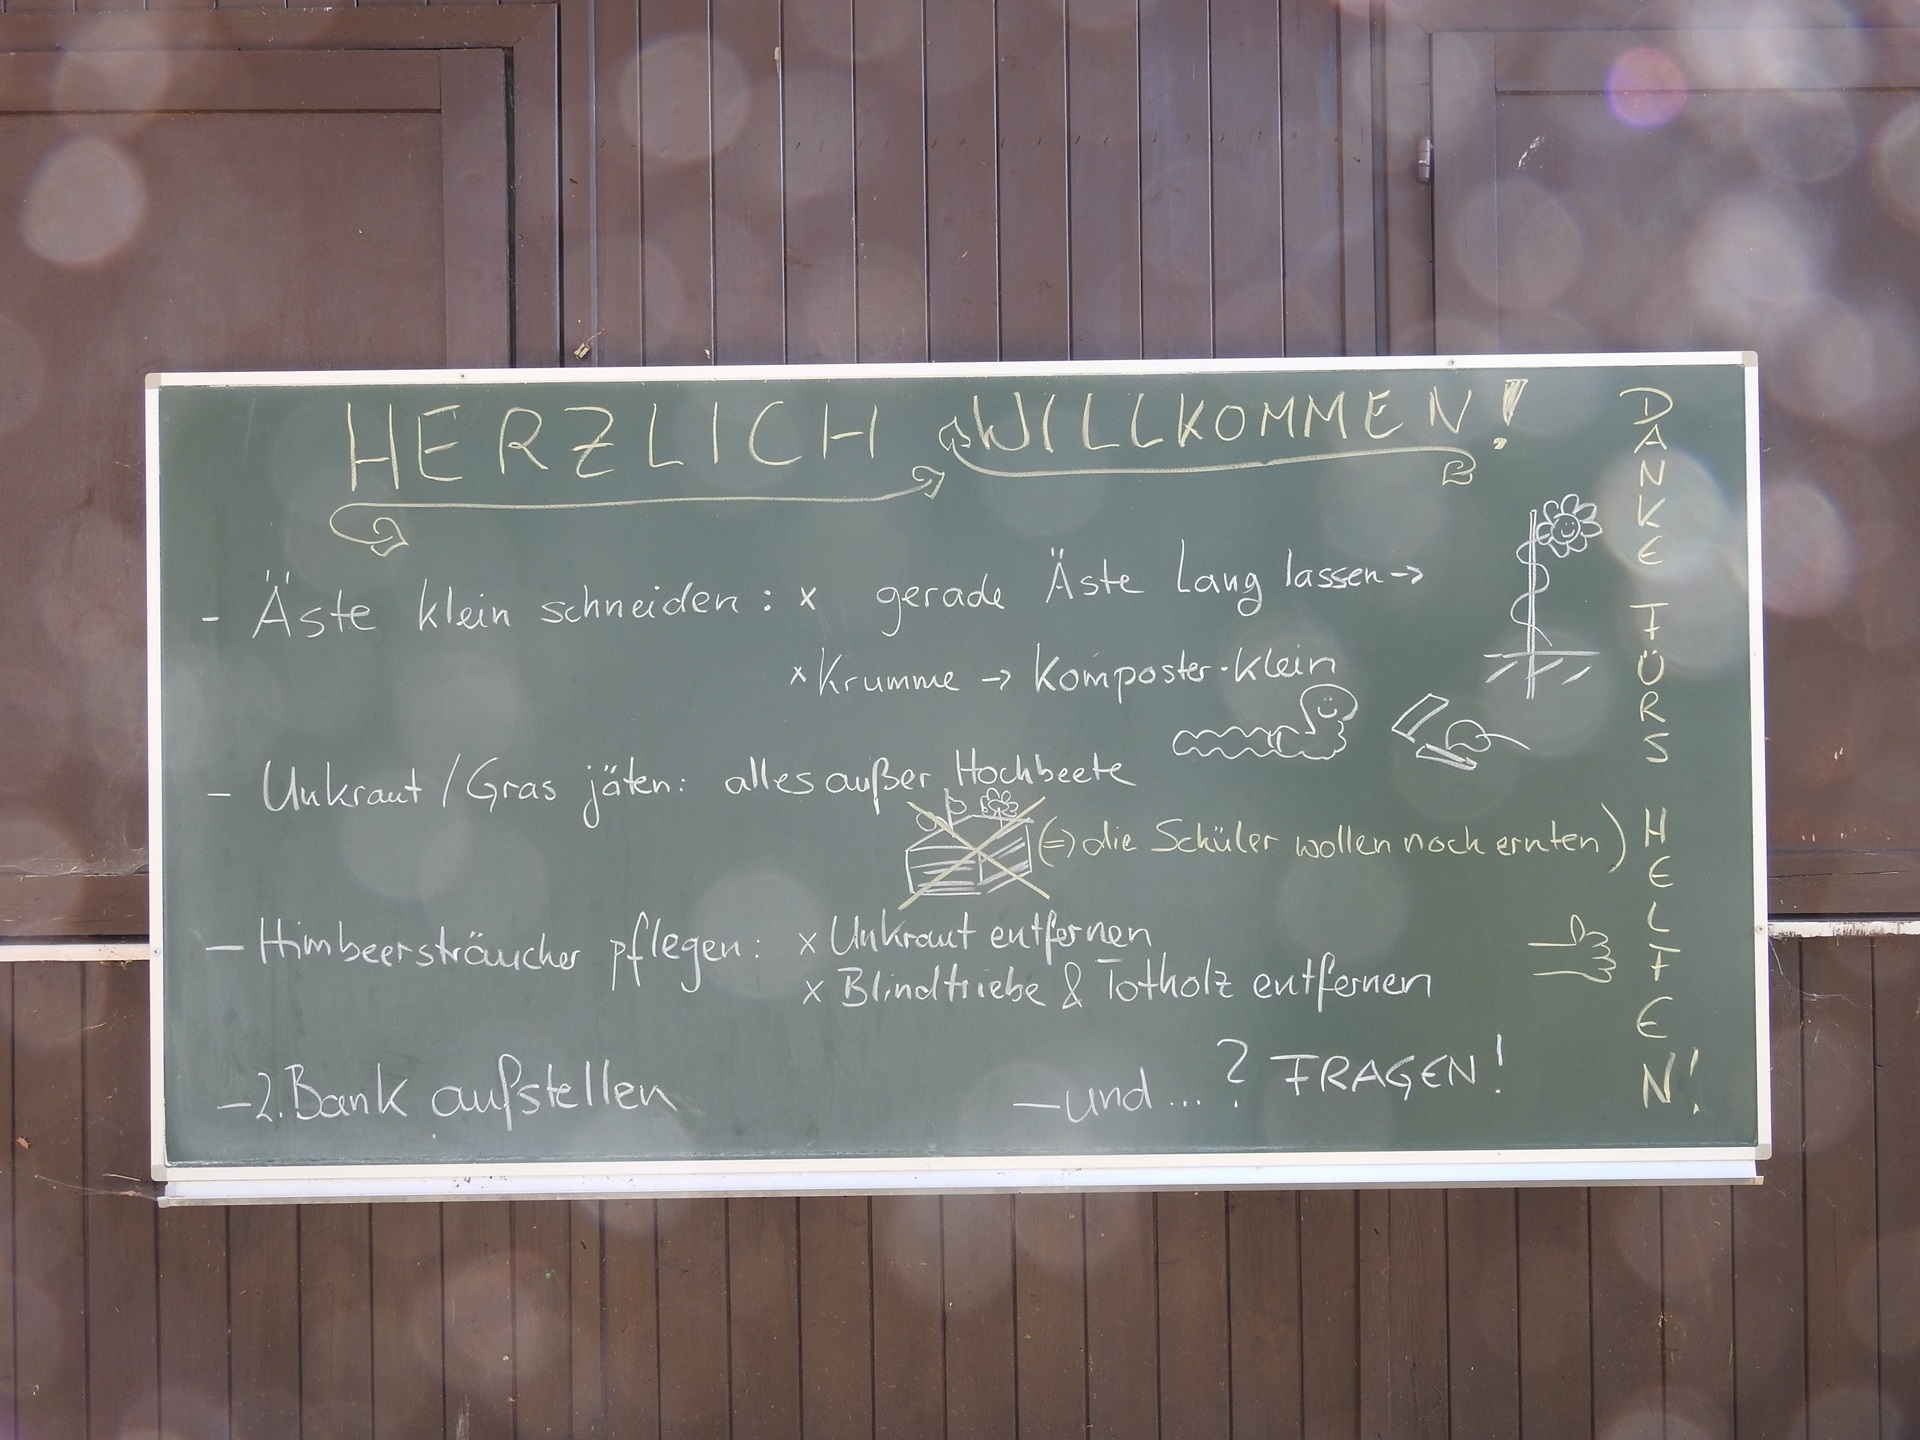 HERZLICH WILLKOMMEN!
- Äste klein schneiden: x gerade Äste lang lassen →
x Krumme → Komposter-klein
- Unkraut/Gras jäten: alles außer Hochbeete
(⇒ die Schüler wollen noch ernten)
- Himbeersträucher pflegen: x Unkraut entfernen
x Blindtriebe & Totholz entfernen
- 2. Bank aufstellen
- und ... ? FRAGEN!
DANKE FÜRS HELFEN!